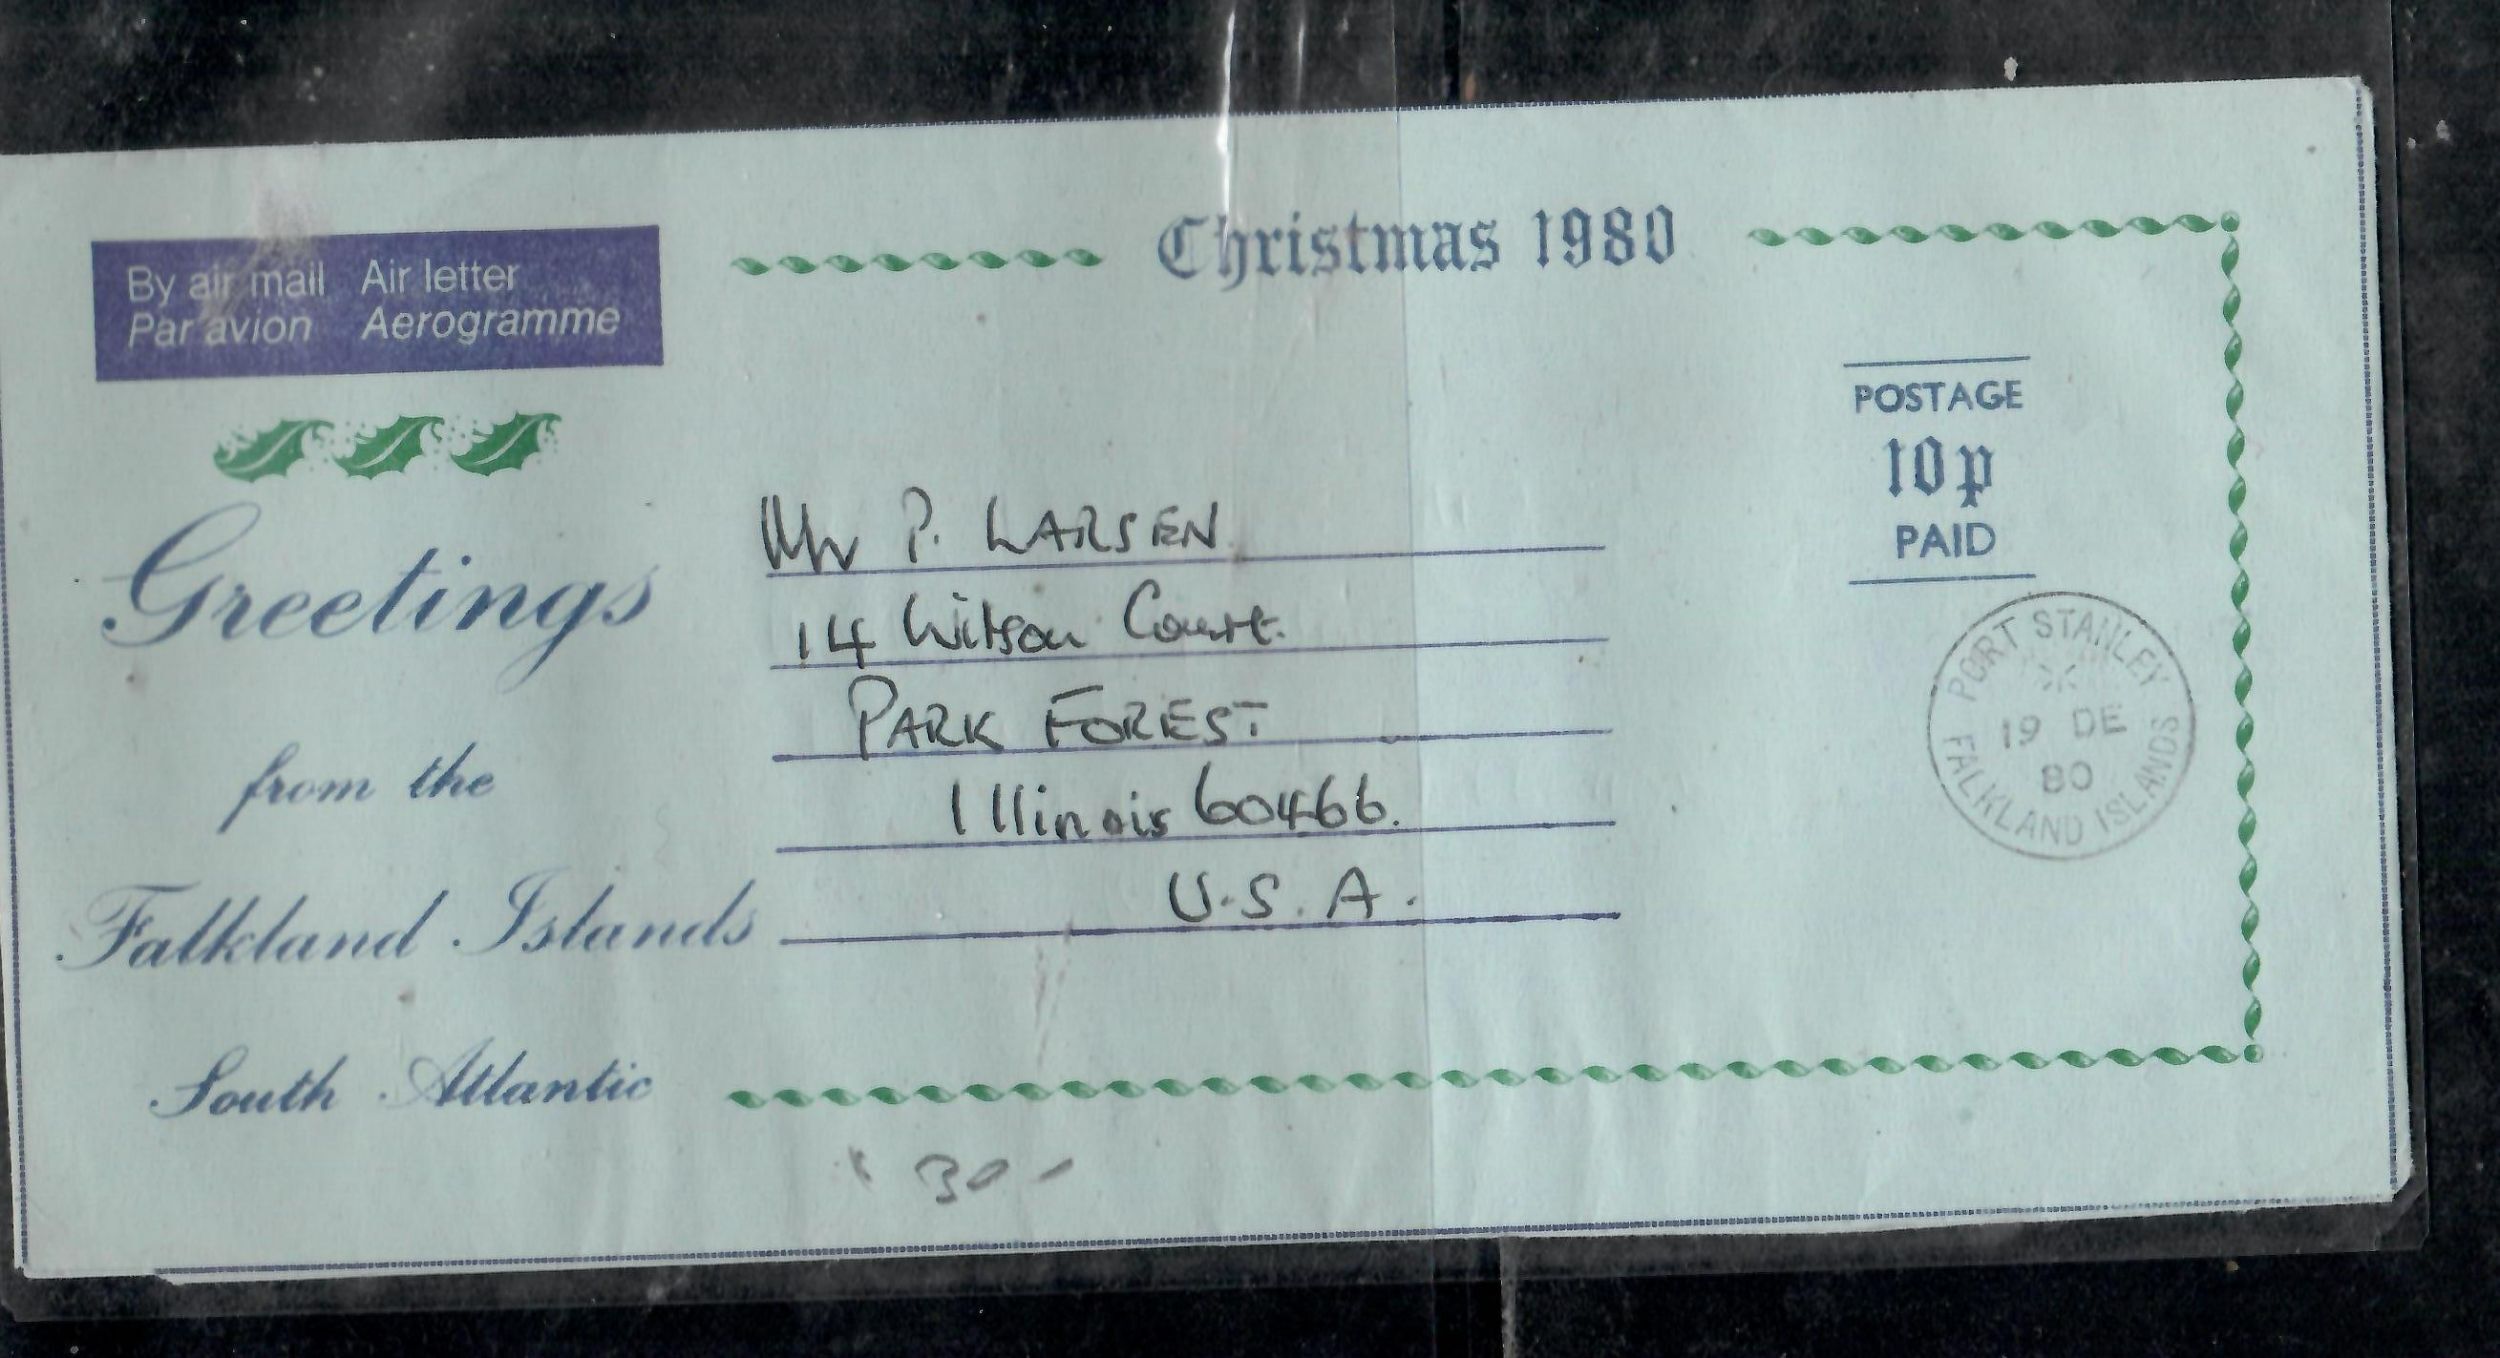 Christmas 1980
By air mail Air letter
Par avion Aerogramme
POSTAGE
10p
PAID
Greetings
from the
Falkland Islands
South Atlantic
Mr P. LARSEN
14 Wilson Court.
PARK FOREST
Illinois 60466.
U.S.A.
PORT STANLEY
19 DE
80
FALKLAND ISLANDS
30-